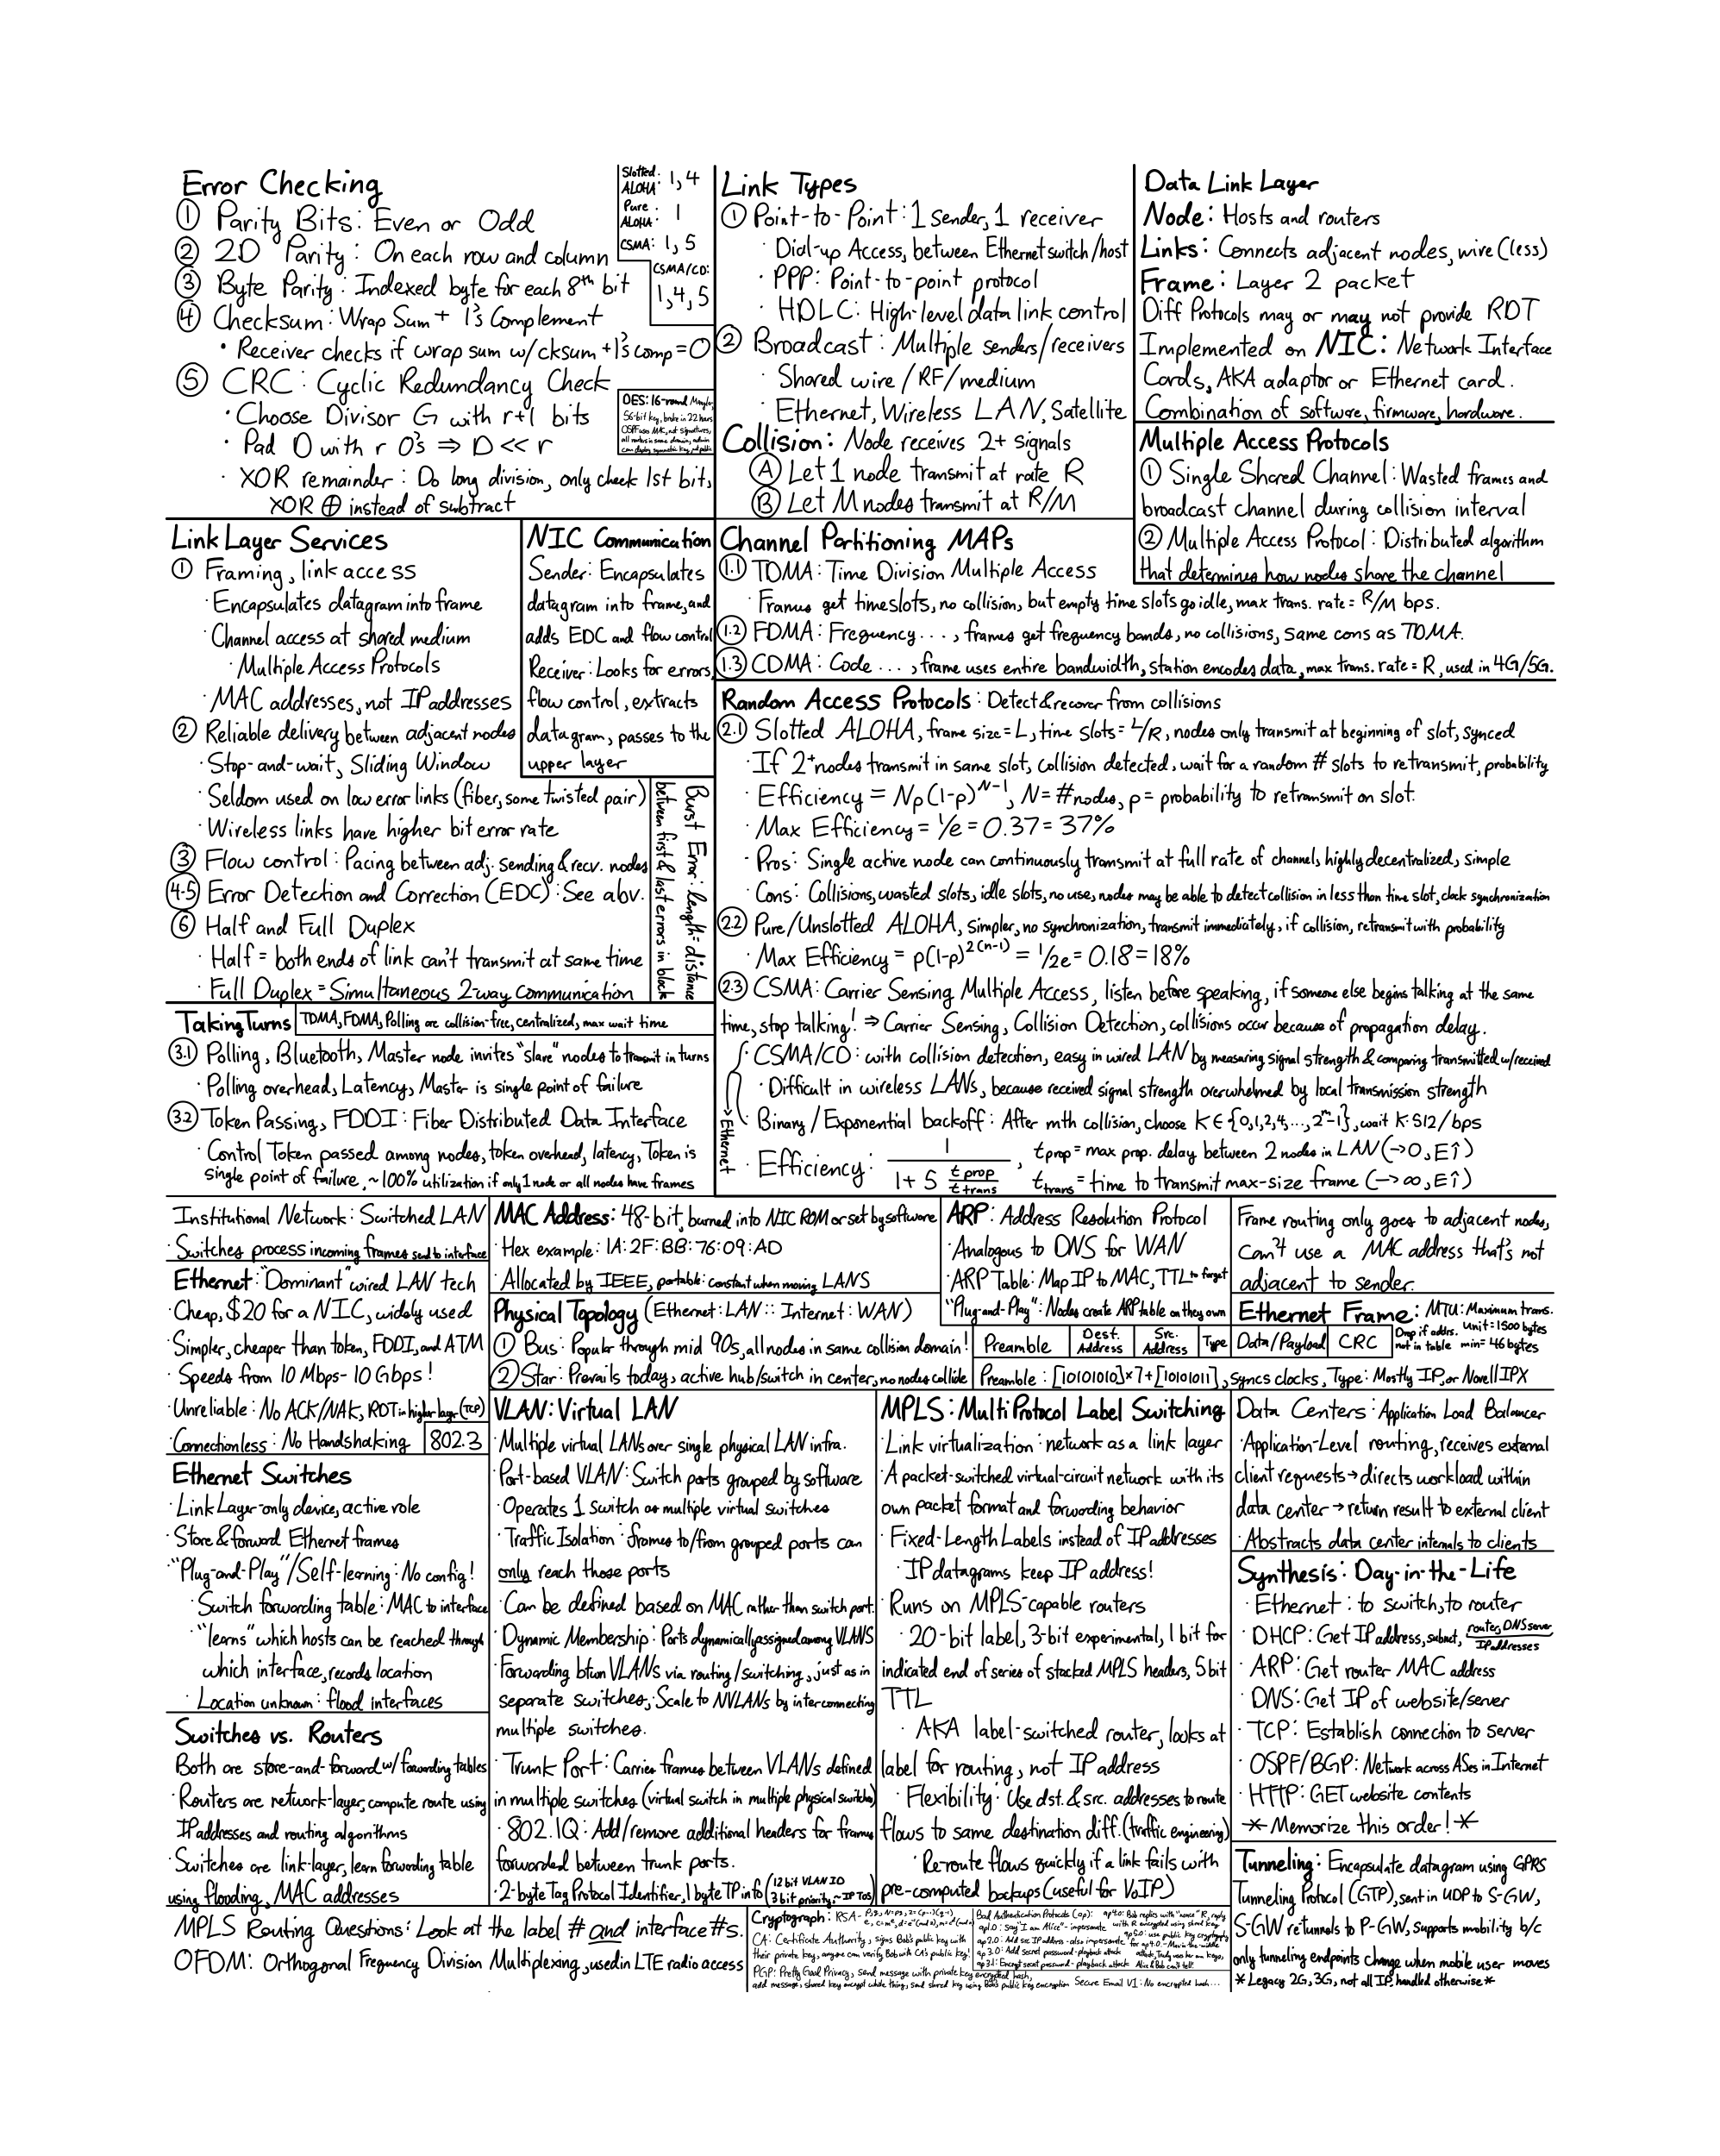 Error Checking
① Parity Bits: Even or Odd
② 2D Parity: On each row and column
③ Byte Parity: Indexed byte for each 8th bit
④ Checksum: Wrap Sum + 1's Complement
• Receiver checks if wrap sum w/cksum + 1's comp = 0
⑤ CRC: Cyclic Redundancy Check
• Choose Divisor G with r+1 bits
• Pad D with r 0's ⇒ D << r
· XOR remainder: Do long division, only check 1st bit,
XOR ⊕ instead of subtract
Slotted ALOHA: 1,4
Pure ALOHA: 1
CSMA: 1,5
CSMA/CD:
1,4,5
DES: 16-round
56-bit key, broke in 22 hours
Link Types
① Point-to-Point: 1 sender, 1 receiver
· Dial-up Access, between Ethernet switch/host
· PPP: Point-to-point protocol
· HDLC: High-level data link control
② Broadcast: Multiple senders/receivers
· Shared wire/RF/medium
· Ethernet, Wireless LAN, Satellite
Collision: Node receives 2+ signals
Ⓐ Let 1 node transmit at rate R
Ⓑ Let M nodes transmit at R/M
Data Link Layer
Node: Hosts and routers
Links: Connects adjacent nodes, wire(less)
Frame: Layer 2 packet
Diff Protocols may or may not provide RDT
Implemented on NIC: Network Interface
Cards, AKA adaptor or Ethernet card.
Combination of software, firmware, hardware.
Multiple Access Protocols
① Single Shared Channel: Wasted frames and
broadcast channel during collision interval
② Multiple Access Protocol: Distributed algorithm
that determines how nodes share the channel
Link Layer Services
① Framing, link access
· Encapsulates datagram into frame
· Channel access at shared medium
· Multiple Access Protocols
· MAC addresses, not IP addresses
② Reliable delivery between adjacent nodes
· Stop-and-wait, Sliding Window
· Seldom used on low error links (fiber, some twisted pair)
· Wireless links have higher bit error rate
③ Flow control: Pacing between adj. sending & recv. nodes
4-5 Error Detection and Correction (EDC): See abv.
⑥ Half and Full Duplex
· Half = both ends of link can't transmit at same time
· Full Duplex = Simultaneous 2-way Communication
NIC Communication
Sender: Encapsulates
datagram into frame, and
adds EDC and flow control
Receiver: Looks for errors,
flow control, extracts
datagram, passes to the
upper layer
Burst Error: length = distance
between first & last errors in block
Channel Partitioning MAPs
1.1 TDMA: Time Division Multiple Access
· Frames get timeslots, no collision, but empty time slots go idle, max trans. rate = R/M bps.
1.2 FDMA: Frequency..., frames get frequency bands, no collisions, same cons as TDMA.
1.3 CDMA: Code ..., frame uses entire bandwidth, station encodes data, max trans. rate = R, used in 4G/5G.
Random Access Protocols: Detect & recover from collisions
2.1 Slotted ALOHA, frame size = L, time slots = L/R, nodes only transmit at beginning of slot, synced
· If 2+ nodes transmit in same slot, collision detected, wait for a random # slots to retransmit, probability
· Efficiency = Np(1-p)^N-1, N = # nodes, p = probability to retransmit on slot.
· Max Efficiency = 1/e = 0.37 = 37%
· Pros: Single active node can continuously transmit at full rate of channel, highly decentralized, simple
· Cons: Collisions, wasted slots, idle slots, no use, nodes may be able to detect collision in less than time slot, clock synchronization
2.2 Pure/Unslotted ALOHA, simpler, no synchronization, transmit immediately, if collision, retransmit with probability
· Max Efficiency = p(1-p)^2(n-1) = 1/2e = 0.18 = 18%
2.3 CSMA: Carrier Sensing Multiple Access, listen before speaking, if someone else begins talking at the same
time, stop talking! ⇒ Carrier Sensing, Collision Detection, collisions occur because of propagation delay.
· CSMA/CD: with collision detection, easy in wired LAN by measuring signal strength & comparing transmitted w/received
· Difficult in wireless LANs, because received signal strength overwhelmed by local transmission strength
· Binary/Exponential backoff: After mth collision, choose K ∈ {0,1,2,4,...,2^m-1}, wait K·512/bps
→ Ethernet
· Efficiency: 1 / (1 + 5 tprop/ttrans), tprop = max prop. delay between 2 nodes in LAN (→0, E↑)
ttrans = time to transmit max-size frame (→∞, E↑)
Taking Turns
TDMA, FDMA, Polling are collision-free, centralized, max wait time
3.1 Polling, Bluetooth, Master node invites "slave" nodes to transmit in turns
· Polling overhead, Latency, Master is single point of failure
3.2 Token Passing, FDDI: Fiber Distributed Data Interface
· Control Token passed among nodes, token overhead, latency, Token is
single point of failure, ~100% utilization if only 1 node or all nodes have frames
Institutional Network: Switched LAN
· Switches process incoming frames sent to interface
Ethernet: "Dominant" wired LAN tech
· Cheap, $20 for a NIC, widely used
· Simpler, cheaper than token, FDDI, and ATM
· Speeds from 10 Mbps-10 Gbps!
· Unreliable: No ACK/NAK, RDT in higher layer (TCP)
· Connectionless: No Handshaking
802.3
MAC Address: 48-bit, burned into NIC ROM or set by software
· Hex example: 1A:2F:BB:76:09:AD
· Allocated by IEEE, portable: constant when moving LANS
ARP: Address Resolution Protocol
· Analogous to DNS for WAN
· ARP Table: Map IP to MAC, TTL to forget
· "Plug-and-Play": Nodes create ARP table on they own
Frame routing only goes to adjacent nodes,
can't use a MAC address that's not
adjacent to sender.
Physical Topology (Ethernet: LAN :: Internet: WAN)
① Bus: Popular through mid 90s, all nodes in same collision domain!
② Star: Prevails today, active hub/switch in center, no nodes collide
Ethernet Frame: MTU: Maximum trans. unit = 1500 bytes
min = 46 bytes
Preamble
Dest. Address
Src. Address
Type
Data/Payload
CRC
Drop if addrs. not in table
Preamble: [10101010]×7+[10101011], syncs clocks, Type: Mostly IP, or Novell IPX
Ethernet Switches
· Link Layer-only device, active role
· Store & forward Ethernet frames
· "Plug-and-Play"/Self-learning: No config!
· Switch forwarding table: MAC to interface
· "learns" which hosts can be reached through
which interface, records location
· Location unknown: flood interfaces
Switches vs. Routers
Both are store-and-forward w/ forwarding tables
· Routers are network-layer, compute route using
IP addresses and routing algorithms
· Switches are link-layer, learn forwarding table
using flooding, MAC addresses
VLAN: Virtual LAN
· Multiple virtual LANs over single physical LAN infra.
· Port-based VLAN: Switch ports grouped by software
· Operates 1 switch as multiple virtual switches
· Traffic Isolation: frames to/from grouped ports can
only reach those ports
· Can be defined based on MAC rather than switch port.
· Dynamic Membership: Ports dynamically assigned among VLANS
· Forwarding btwn VLANs via routing/switching, just as in
separate switches, Scale to N VLANs by interconnecting
multiple switches.
· Trunk Port: Carries frames between VLANs defined
in multiple switches (virtual switch in multiple physical switches)
· 802.1Q: Add/remove additional headers for frames
forwarded between trunk ports.
· 2-byte Tag Protocol Identifier, 1 byte TP info (12 bit VLAN ID
3 bit priority, ~IP TOS)
MPLS: MultiProtocol Label Switching
· Link virtualization: network as a link layer
· A packet-switched virtual-circuit network with its
own packet format and forwarding behavior
· Fixed-Length Labels instead of IP addresses
· IP datagrams keep IP address!
· Runs on MPLS-capable routers
· 20-bit label, 3-bit experimental, 1 bit for
indicated end of series of stacked MPLS headers, 5 bit
TTL
· AKA label-switched router, looks at
label for routing, not IP address
· Flexibility: Use dst. & src. addresses to route
flows to same destination diff. (traffic engineering)
· Re-route flows quickly if a link fails with
pre-computed backups (useful for VoIP)
Data Centers: Application Load Balancer
· Application-Level routing, receives external
client requests → directs workload within
data center → return result to external client
· Abstracts data center internals to clients
Synthesis: Day-in-the-Life
· Ethernet: to switch, to router
· DHCP: Get IP address, subnet, router, DNS server IP addresses
· ARP: Get router MAC address
· DNS: Get IP of website/server
· TCP: Establish connection to server
· OSPF/BGP: Network across ASes in Internet
· HTTP: GET website contents
* Memorize this order! *
Tunneling: Encapsulate datagram using GPRS
Tunneling Protocol (GTP), sent in UDP to S-GW,
S-GW retunnels to P-GW, supports mobility b/c
only tunneling endpoints change when mobile user moves
* Legacy 2G, 3G, not all IP, handled otherwise *
MPLS Routing Questions: Look at the label # and interface #s.
OFDM: Orthogonal Frequency Division Multiplexing, used in LTE radio access
Cryptograph: RSA-
CA: Certificate Authority, signs Bob's public key with
their private key, anyone can verify Bob with CA's public key!
PGP: Pretty Good Privacy, send message with private key encrypted hash,
add message, shared key encrypt whole thing, send shared key using Bob's public key encryption Secure Email V1: No encrypted hash...
Bad Authentication Protocols (ap):
ap1.0: say "I am Alice" - impersonate
ap2.0: Add src IP address - also impersonate
ap3.0: Add secret password - playback attack
ap3.1: Encrypt secret password - playback attack